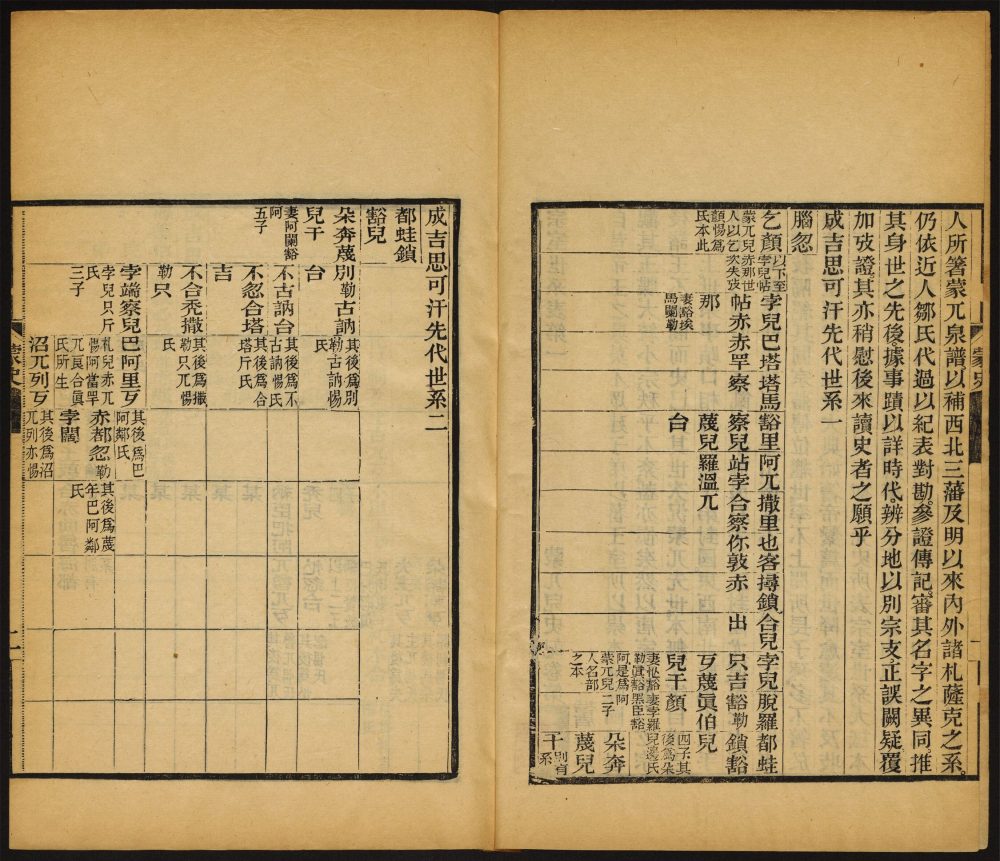 人所箸蒙兀泉譜以補西北三藩及明以來內外諸札薩克之系。
仍依近人鄒氏代過以紀表對勘。參證傳記。審其名字之異同。推
其身世之先後。據事蹟以詳時代。辨分地以別宗支。正誤闕疑。覆
加攷證。其亦稍慰後來讀史者之願乎
成吉思可汗先代世系一
腦忽
乞顏
以下至孛兒帖
蒙兀兒赤那世
人以乞次失攷
顏惕爲
氏本此
孛兒巴塔塔馬豁里阿兀撒里也客撏鎖合兒孛兒脫羅都蛙
帖赤赤罕察察兒站孛合察你敦赤出只吉豁勒鎖豁
那蔑兒羅溫兀歹蔑眞伯兒
妻豁埃
馬闌勒
台
兒干顏
四子其
後爲朵
阿是爲阿
蒙兀兒二子
人名部
之本
朵奔
蔑兒
干
別有
系
成吉思可汗先代世系二
都蛙鎖
豁兒
朵奔蔑
兒干
妻阿闌豁
阿
五子
別勒古訥
台
其後爲別
勒古訥惕
氏
不古訥台
其後爲不
古訥惕氏
不忽合塔
吉
其後爲合
塔斤氏
不合禿撒
勒只
其後爲撒
勒只兀惕
氏
孛端察兒
孛兒只斤
氏
三子
巴阿里歹
其後爲巴
阿鄰氏
札兒赤兀
惕阿當罕
兀良合眞
氏所生
赤都忽勒
孛闊
其後爲蔑
年巴阿鄰
氏
沼兀列歹
其後爲沼
兀列亦惕
蒙史